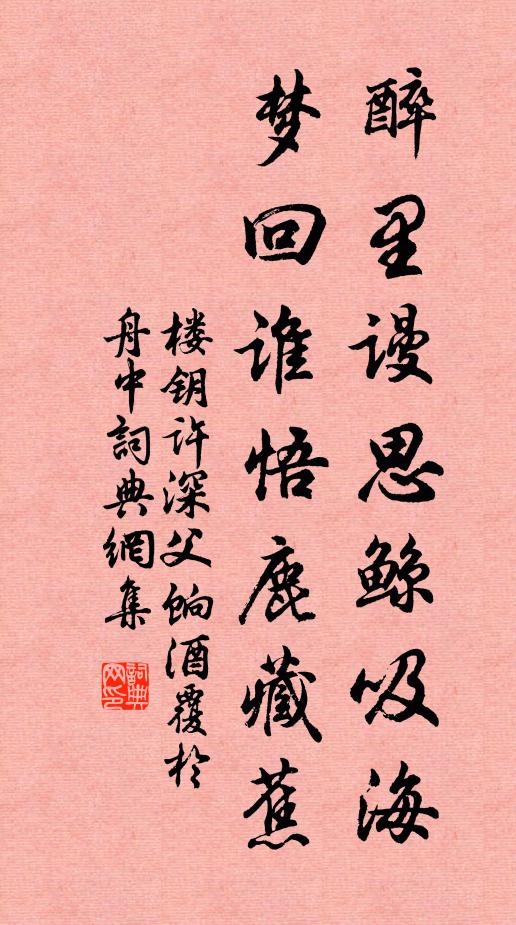 醉里谩思鲸吸海
梦回谁悟鹿藏蕉
楼钥许深父饷酒覆于
舟中詞典網集
詞典
网印